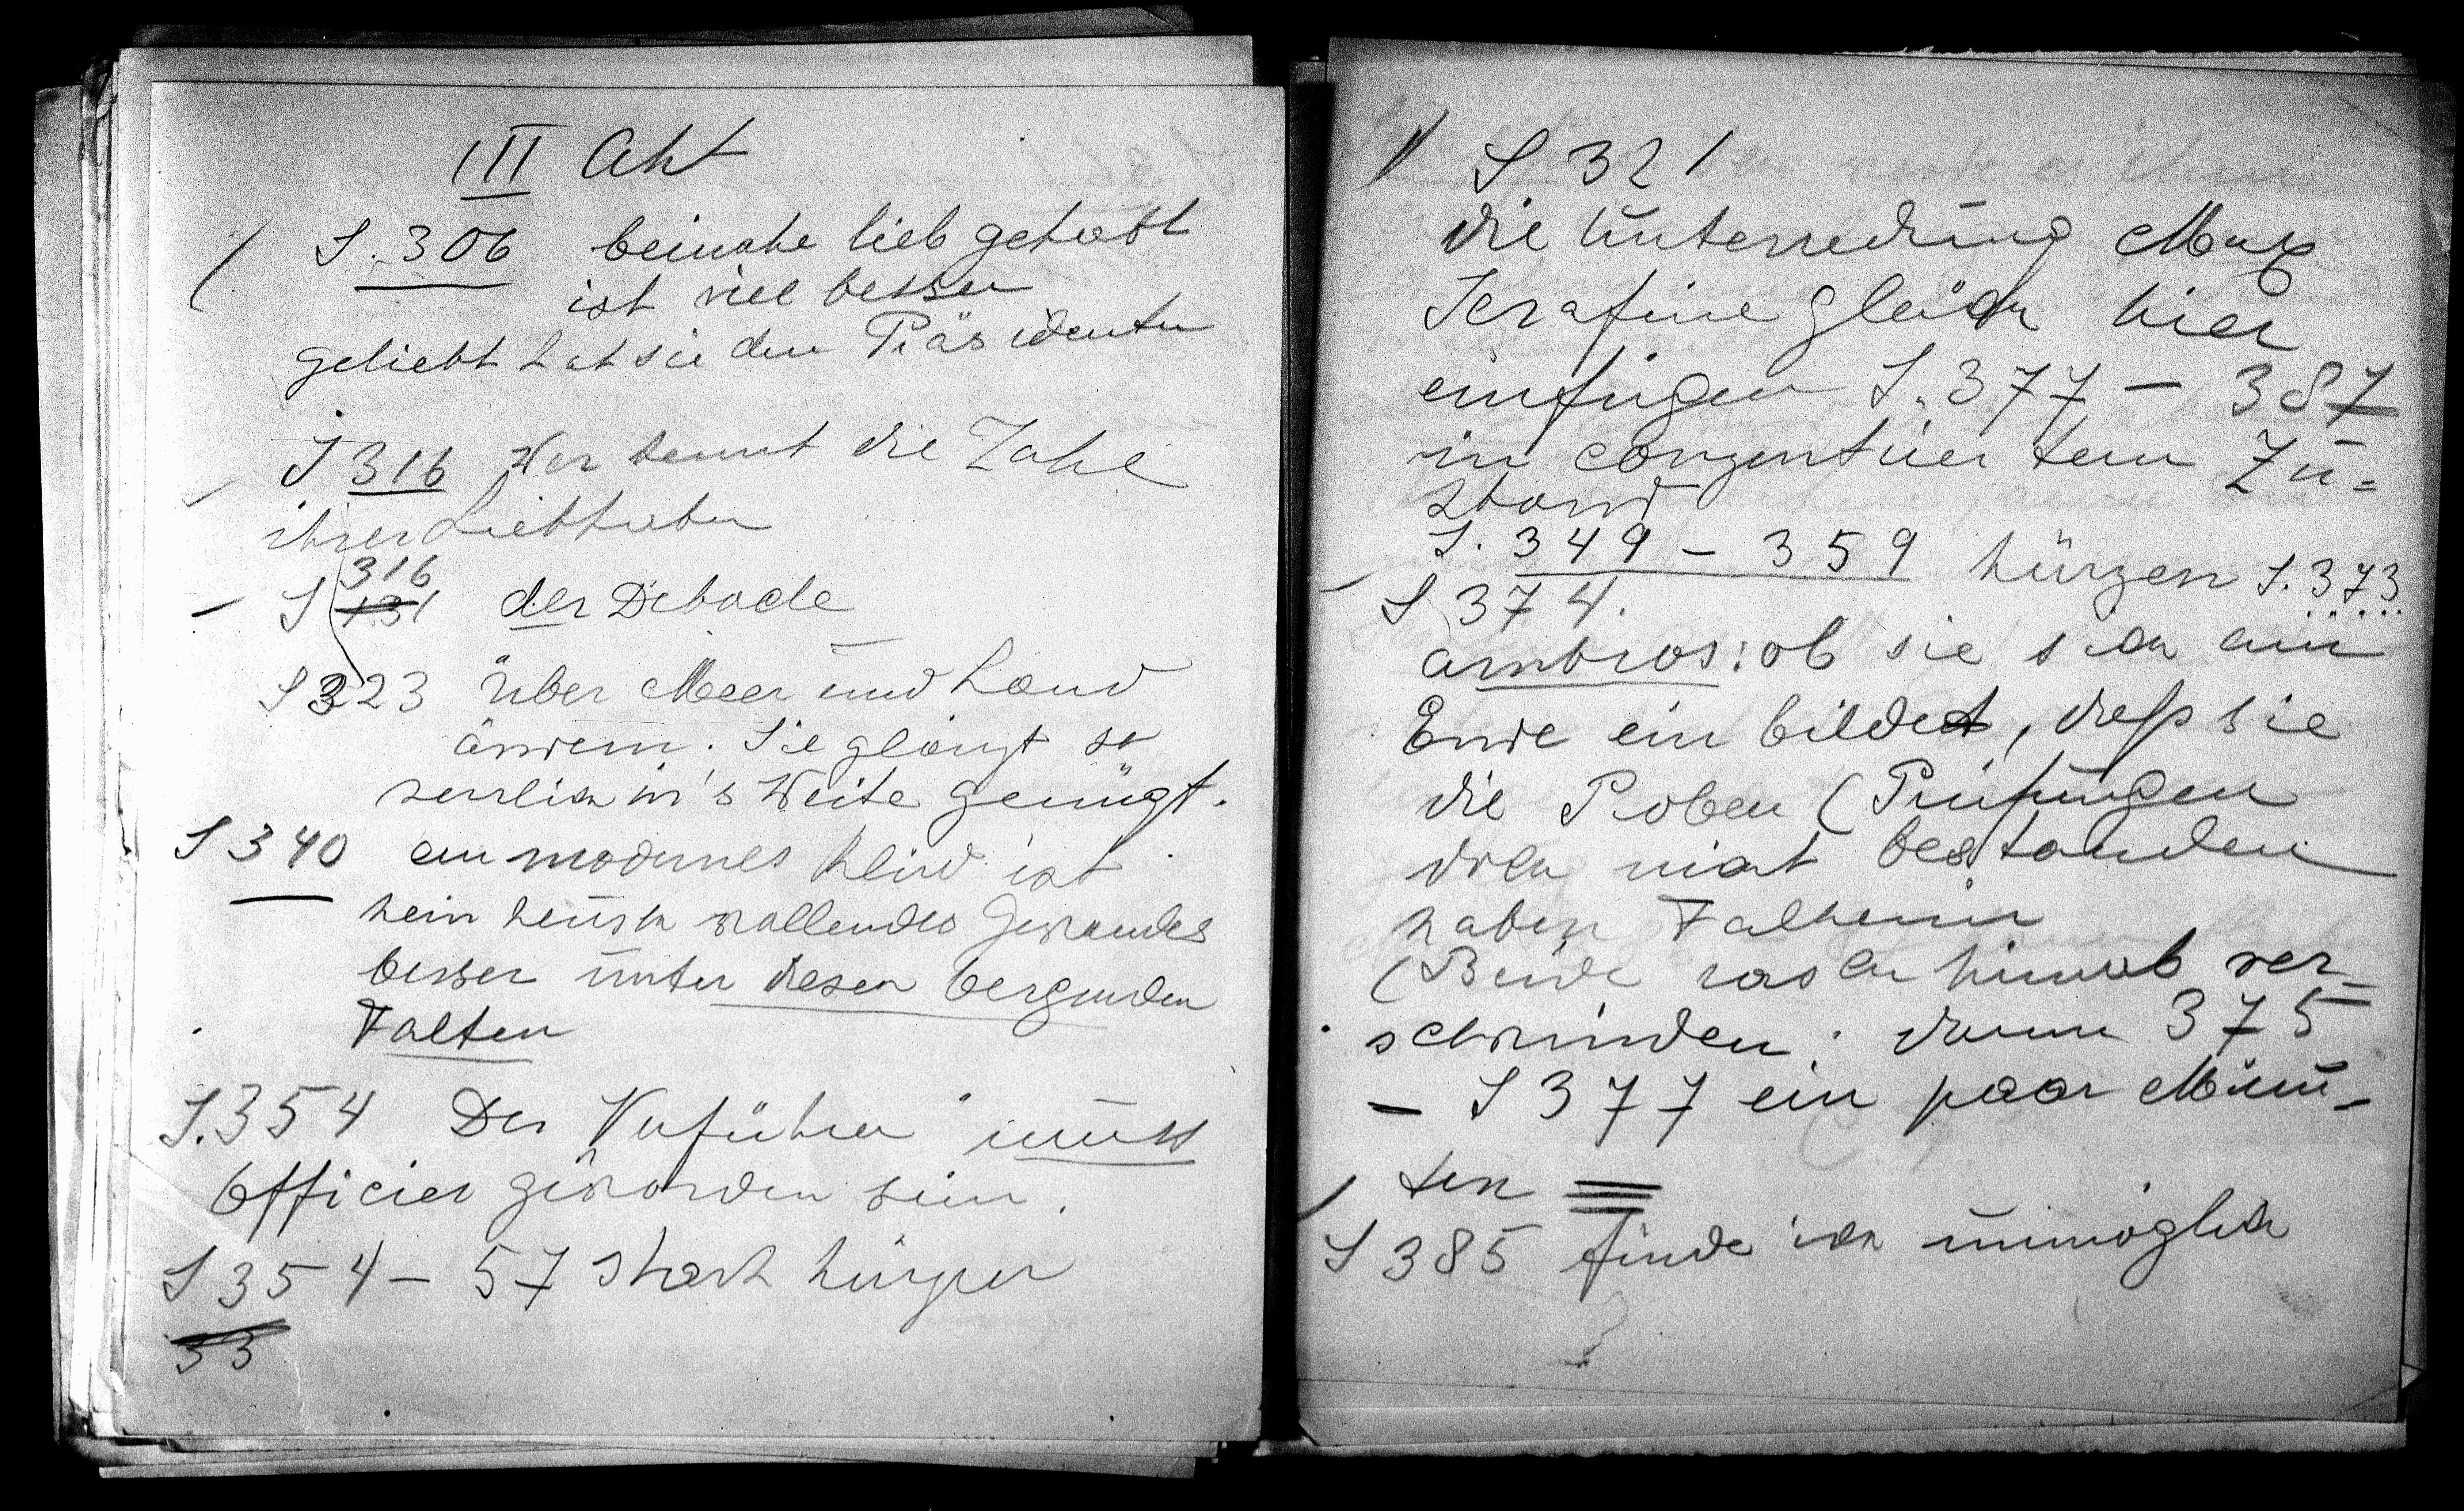 III Akt
S. 306 beinahe lieb gehabt
ist viel besser
geliebt hat sie den Präsidenten
S 316 Wer kennt die Zahl
ihrer Liebhaber
316
S 131 der Debacle
S 323 Über Meer und Land
ändern. Sie glänzt so
herrlich in's Weite genügt.
S 340 ein modernes Kleid ist
kein keusch wallendes Gewandes
besser unter diesen bergenden
Falten
S. 354 Der Verführer muss
Officier geworden sein.
S 354 – 57 stark kürzen
33
S 321
die Unterredung Max
Serafine gleich hier
einfügen S. 377 – 387
in conzentriertem Zu=
stand
S. 349 – 359 kürzen S. 373
S 374.
Ambros: ob sie sich am
Ende ein bildet, daß sie
die Proben (Prüfungen
doch nicht bestanden
haben Falkenir
(Beide rasch hinab ver-
schwinden. dann 375
– S 377 ein paar Minu-
ten
S 385 finde ich unmöglich